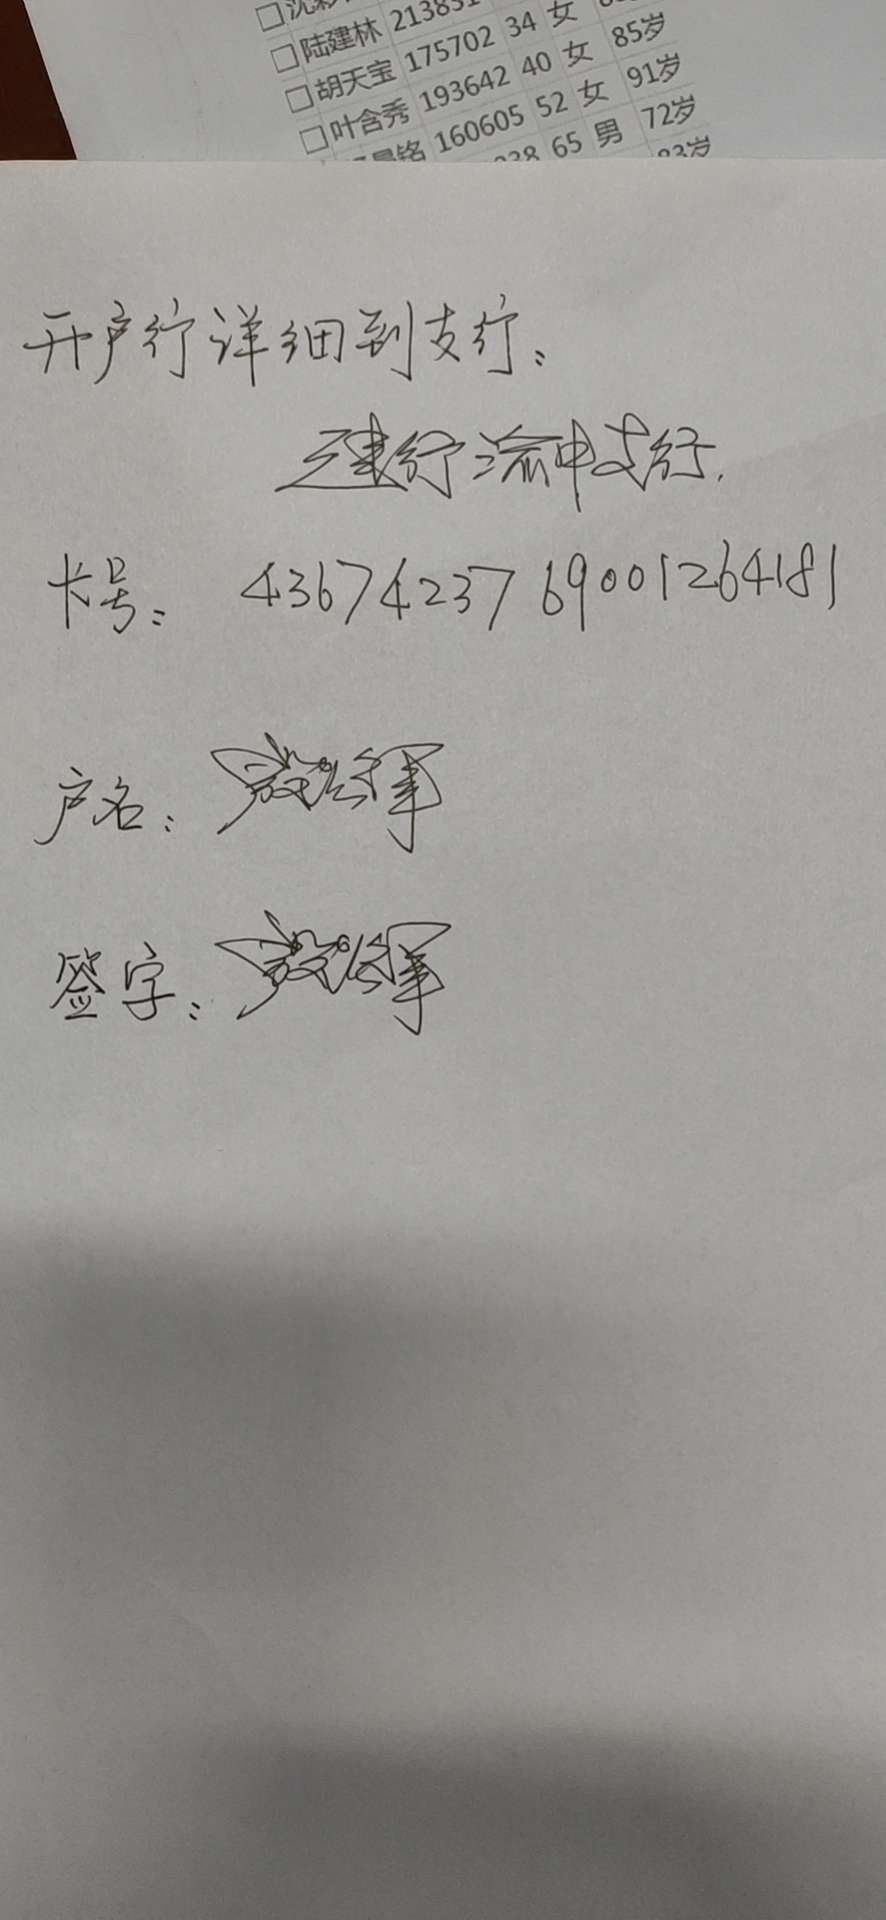 陆建林 21383
胡天宝 175702 34 女
叶含秀 193642 40 女 85岁
铭 160605 52 女 91岁
65 男 72岁
开户行详细到支行：
建行渝中支行.
卡号： 4367423769001264181
户名：
签字：